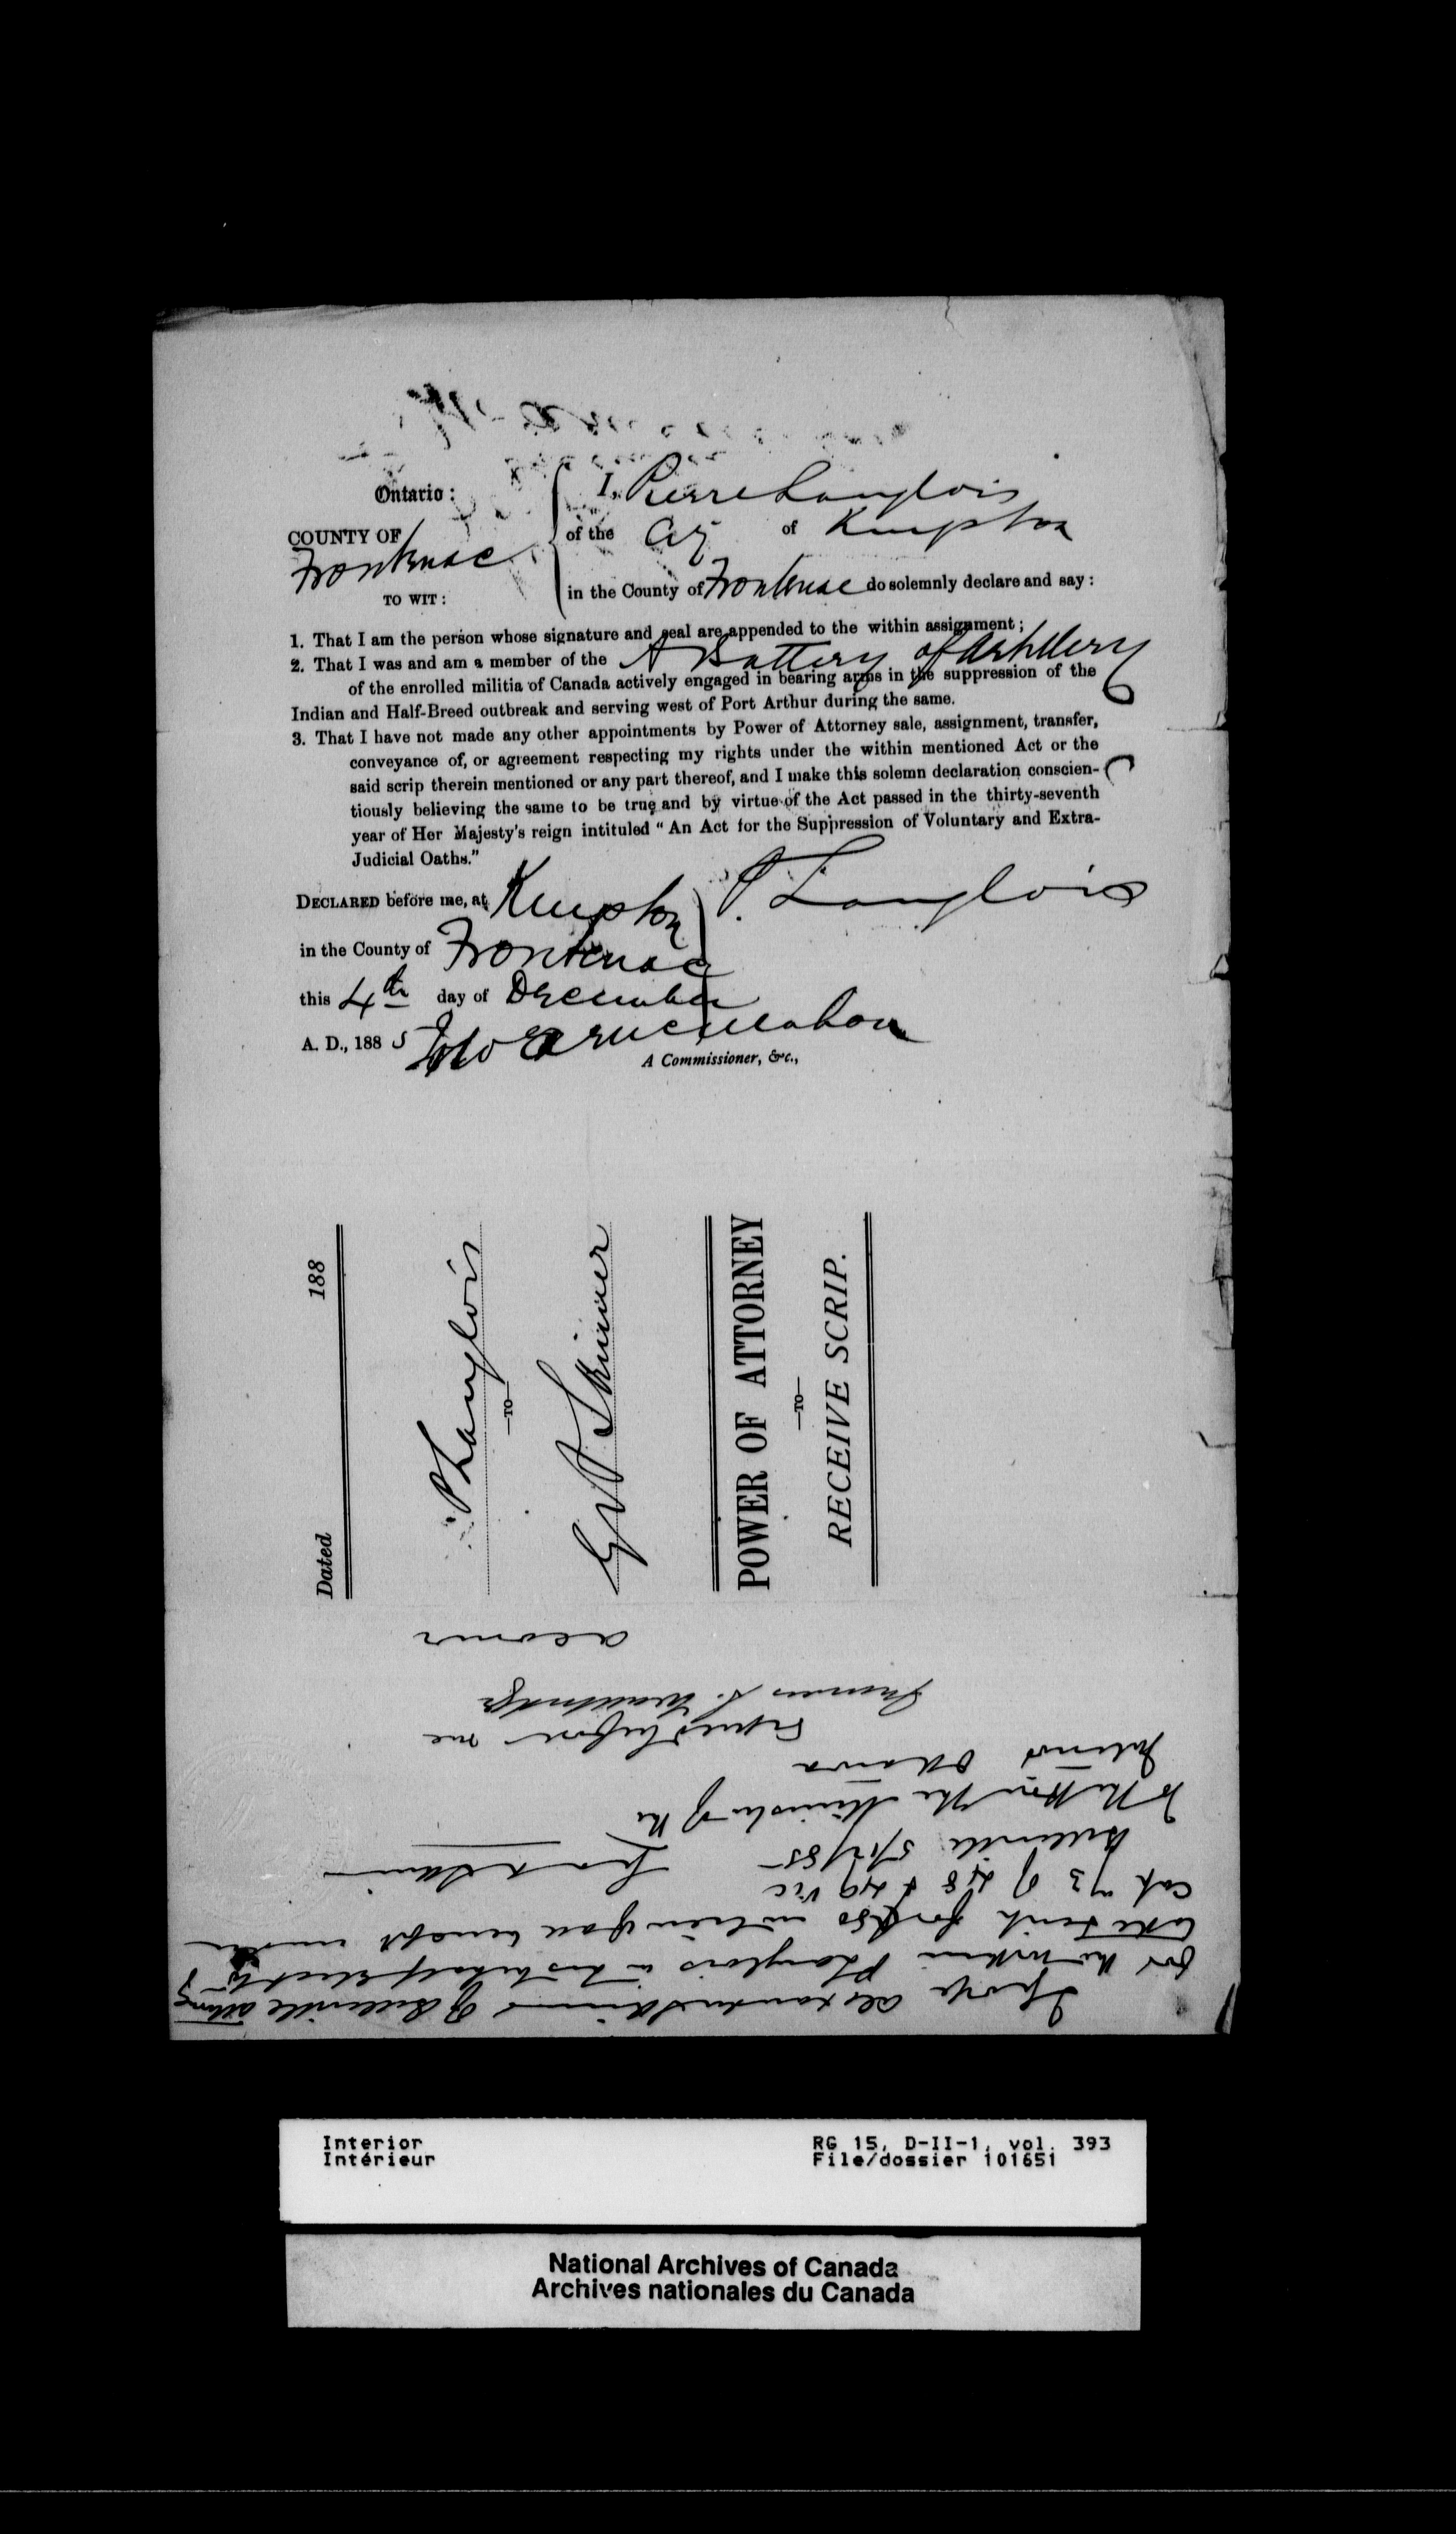 Ontario :
COUNTY OF
Frontenac
TO WIT :
I, Pierre Langlois
of the City of Kingston
in the County of Frontenac do solemnly declare and say :
1. That I am the person whose signature and seal are appended to the within assignment ;
2. That I was and am a member of the A Battery of Artillery
of the enrolled militia of Canada actively engaged in bearing arms in the suppression of the
Indian and Half-Breed outbreak and serving west of Port Arthur during the same.
3. That I have not made any other appointments by Power of Attorney sale, assignment, transfer,
conveyance of, or agreement respecting my rights under the within mentioned Act or the
said scrip therein mentioned or any part thereof, and I make this solemn declaration conscien-
tiously believing the same to be true and by virtue of the Act passed in the thirty-seventh
year of Her Majesty's reign intituled "An Act for the Suppression of Voluntary and Extra-
Judicial Oaths."
DECLARED before me, at Kingston
in the County of Frontenac
this 4th day of December
A. D., 1885
P. Langlois
A Commissioner, &c.,
Dated 188
P Langlois
—TO—
G A Skinner
POWER OF ATTORNEY
—TO—
RECEIVE SCRIP.
I George Alexander Skinner of Belleville attorney
for the within P Langlois in his behalf elect to
take scrip for $80 in lieu of all benefit under
Cap 73 of 48 & 49 Vic
Belleville 5/12/85
To the Hon The Minister of the
Interior Ottawa
Signed before me
Interior
Intérieur
RG 15, D-II-1, vol. 393
File/dossier 101651
National Archives of Canada
Archives nationales du Canada